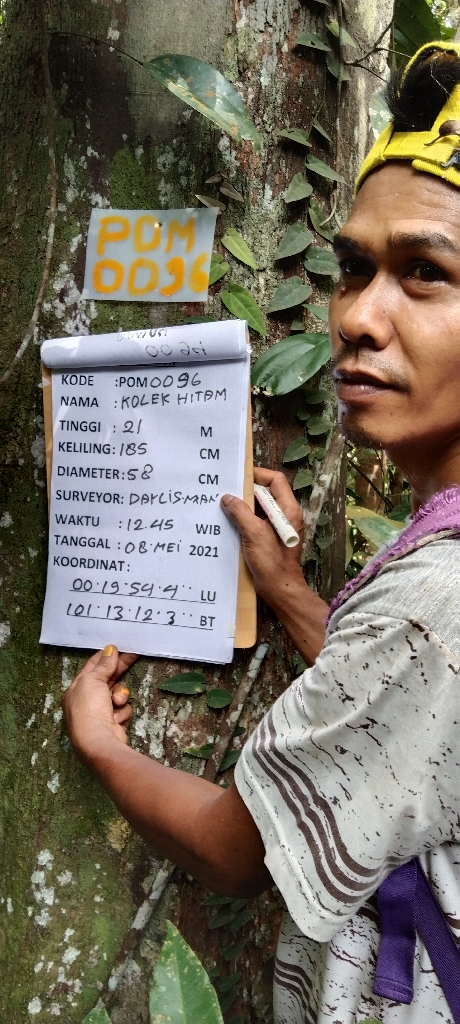 POM
0096
KODE : POM0096
NAMA : KOLEK HITAM
TINGGI : 21 M
KELILING: 185 CM
DIAMETER: 58 CM
SURVEYOR: DAYLISMAN
WAKTU : 12.45 WIB
TANGGAL : 08 MEI 2021
KOORDINAT:
00.19.54.4.. LU
101.13.12.3.. BT